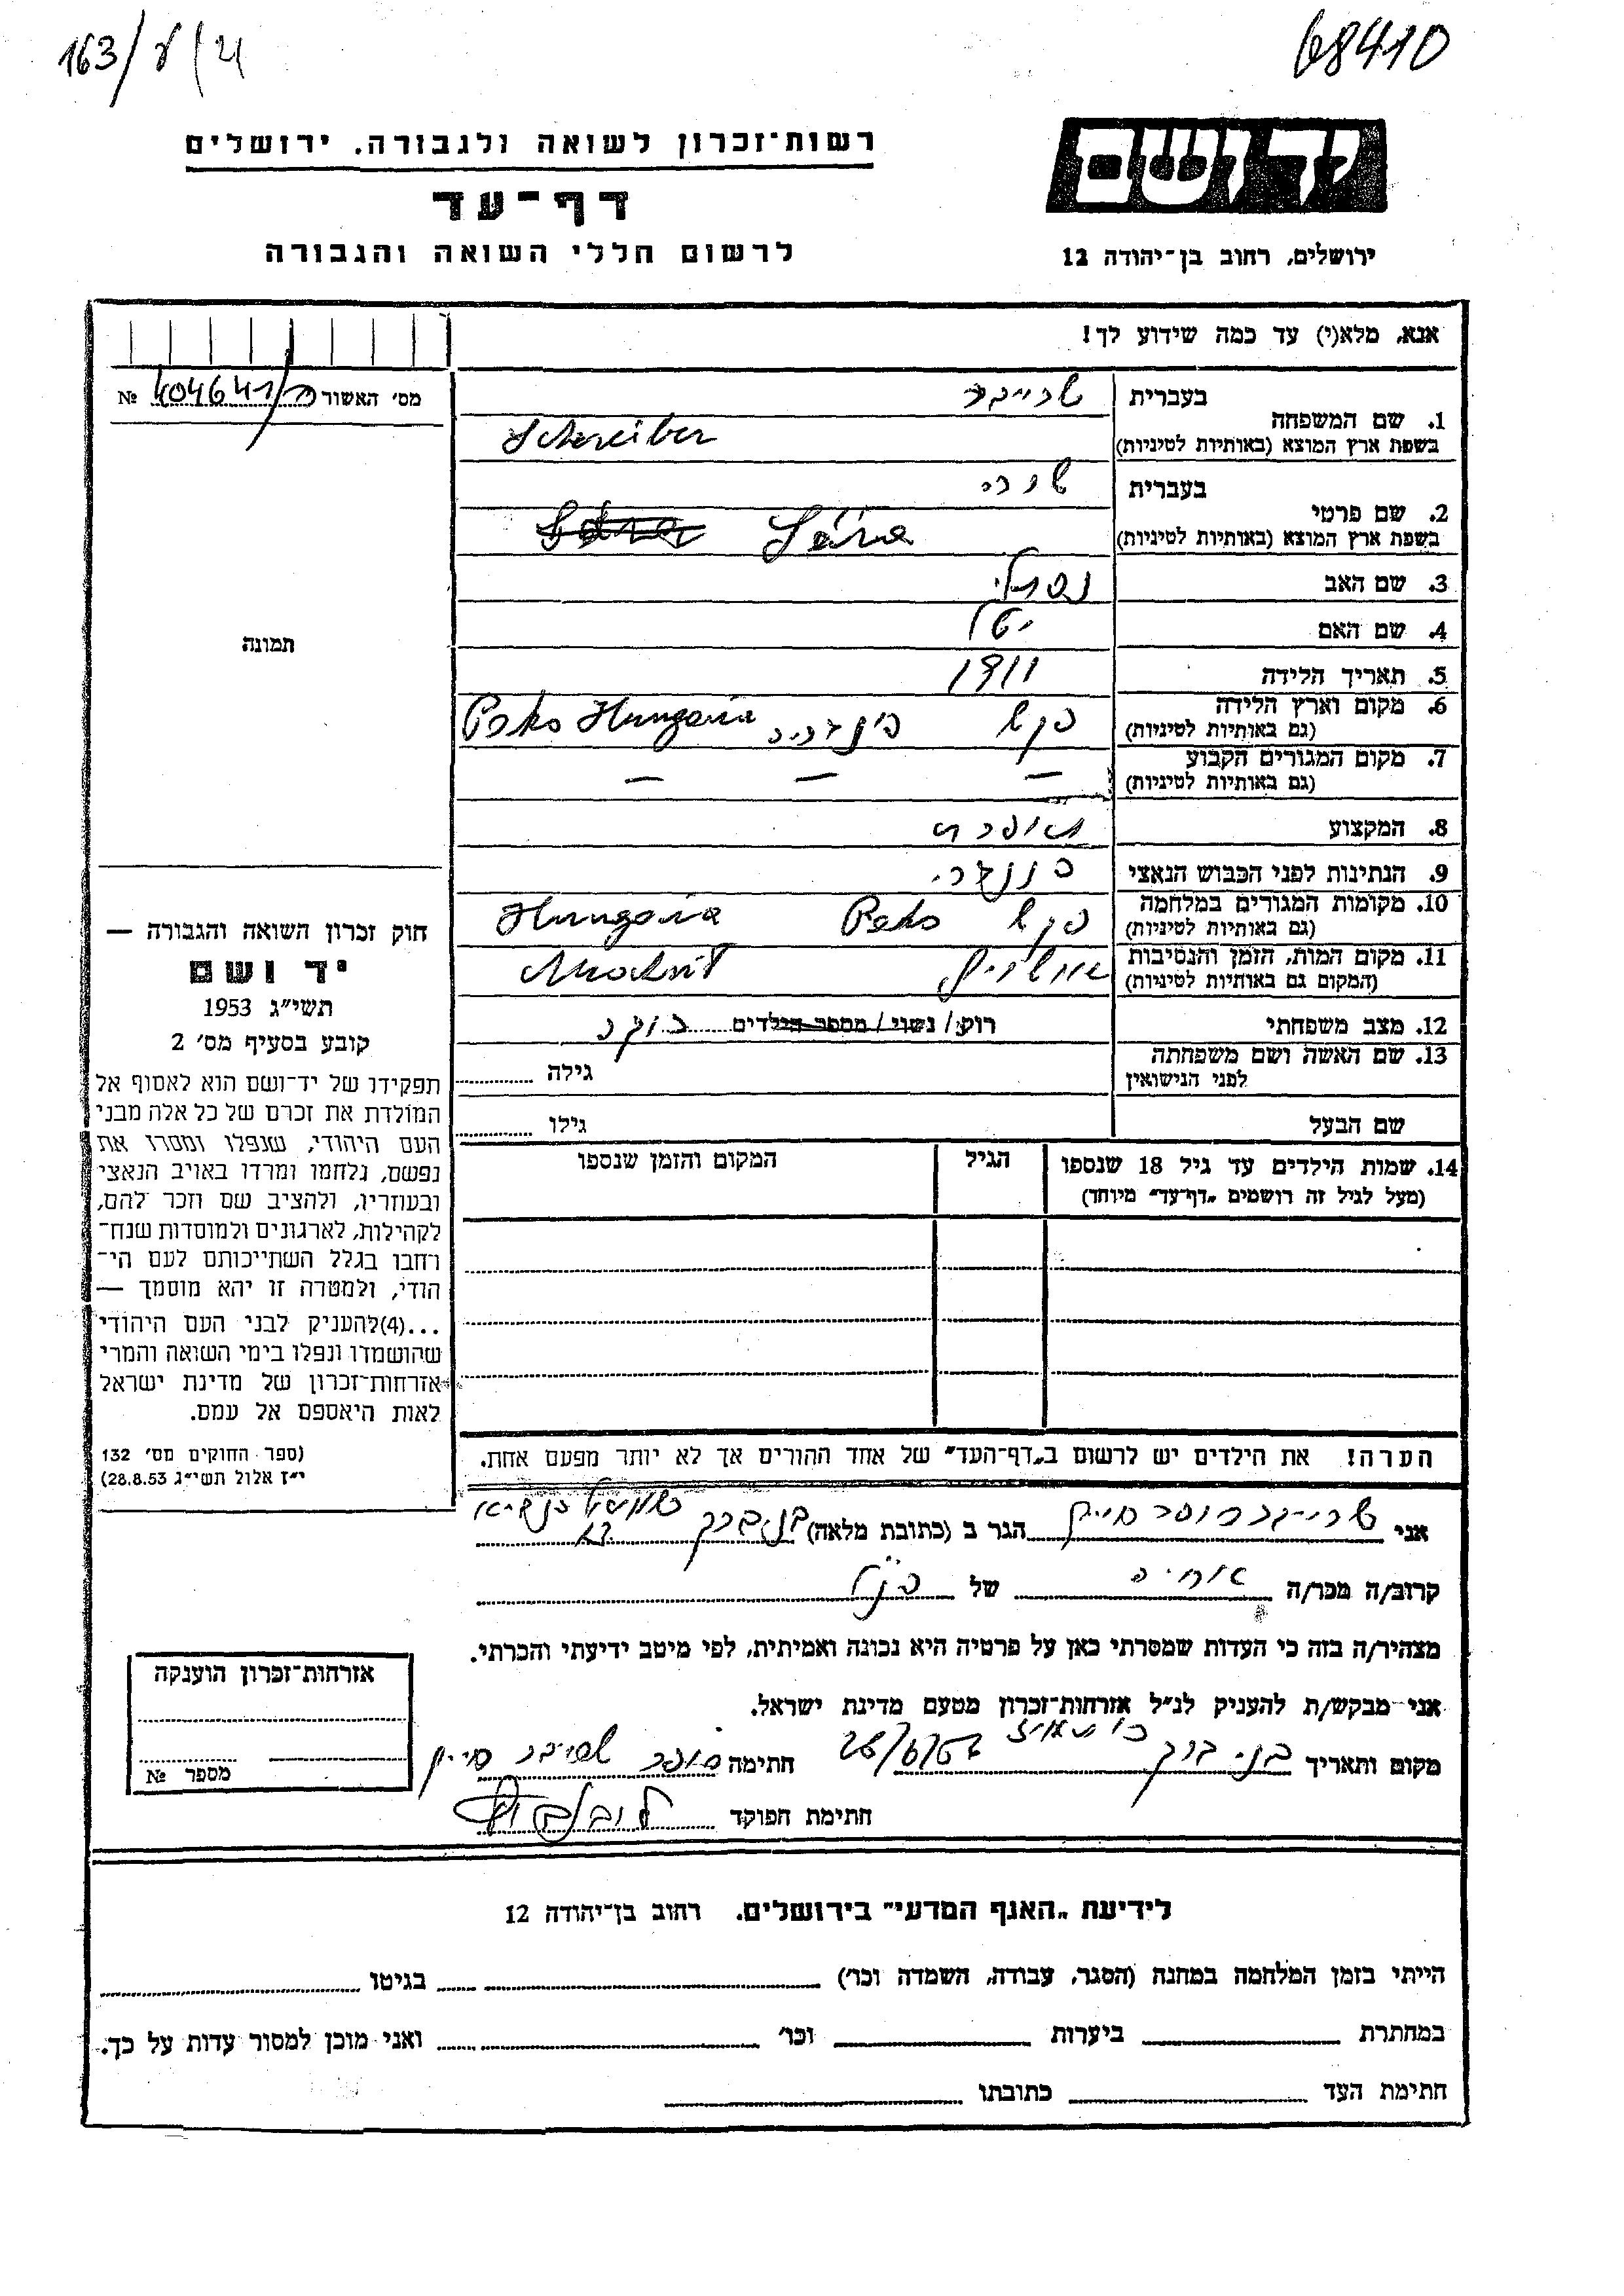 163/
68410
יד ושם
רשות־זכרון לשואה ולגבורה. ירושלים
דף־עד
לרשום חללי השואה והגבורה
ירושלים, רחוב בן־יהודה 12
אנא, מלא(י) עד כמה שידוע לך!
מס׳ האשור 404641 №
בעברית שרייבר
1. שם המשפחה
בשפת ארץ המוצא (באותיות לטיניות) Schreiber
בעברית שרה
2. שם פרטי
בשפת ארץ המוצא (באותיות לטיניות) Sára
3. שם האב נפתלי
4. שם האם
5. תאריך הלידה 1911
6. מקום וארץ הלידה
(גם באותיות לטיניות) Hungaria
7. מקום המגורים הקבוע — — —
(גם באותיות לטיניות)
8. המקצוע תופרת
9. הנתינות לפני הכבוש הנאצי הונגרי
10. מקומות המגורים במלחמה
(גם באותיות לטיניות) Hungaria
11. מקום המות, הזמן והנסיבות
(המקום גם באותיות לטיניות) אושוויץ
12. מצב משפחתי רוק/ נשוי/ מספר הילדים
13. שם האשה ושם משפחתה
לפני הנישואין גילה
שם הבעל גילו
14. שמות הילדים עד גיל 18 שנספו
(מעל לגיל זה רושמים „דף־עד" מיוחד)
הגיל
המקום והזמן שנספו
הערה! את הילדים יש לרשום ב„דף־העד" של אחד ההורים אך לא יותר מפעם אחת.
תמונה
חוק זכרון השואה והגבורה —
יד ושם
תשי״ג 1953
קובע בסעיף מס׳ 2
תפקידו של יד־ושם הוא לאסוף אל
המולדת את זכרם של כל אלה מבני
העם היהודי, שנפלו ומסרו את
נפשם, נלחמו ומרדו באויב הנאצי
ובעוזריו, ולהציב שם וזכר להם,
לקהילות, לארגונים ולמוסדות שנח־
רחבו בגלל השתייכותם לעם הי־
הודי, ולמטרה זו יהא מוסמך —
...(4)להעניק לבני העם היהודי
שהושמדו ונפלו בימי השואה והמרי
אזרחות־זכרון של מדינת ישראל
לאות היאספם אל עמם.
(ספר החוקים מס׳ 132
י״ז אלול תשי״ג 28.8.53)
אני שרייבר סופר חיים הגר ב (כתובת מלאה) בני ברק
קרוב/ה מכר/ה של הנ״ל
מצהיר/ה בזה כי העדות שמסרתי כאן על פרטיה היא נכונה ואמיתית, לפי מיטב ידיעתי והכרתי.
אני מבקש/ת להעניק לנ״ל אזרחות־זכרון מטעם מדינת ישראל.
מקום ותאריך בני ברק חתימה סופר שרייבר חיים
חתימת הפוקד
אזרחות־זכרון הוענקה
מספר №
לידיעת „האגף המדעי" בירושלים. רחוב בן־יהודה 12
הייתי בזמן המלחמה במחנה (הסגר, עבודה, השמדה וכו׳) בגיטו
במחתרת ביערות וכו׳ ואני מוכן למסור עדות על כך.
חתימת העד כתובתו